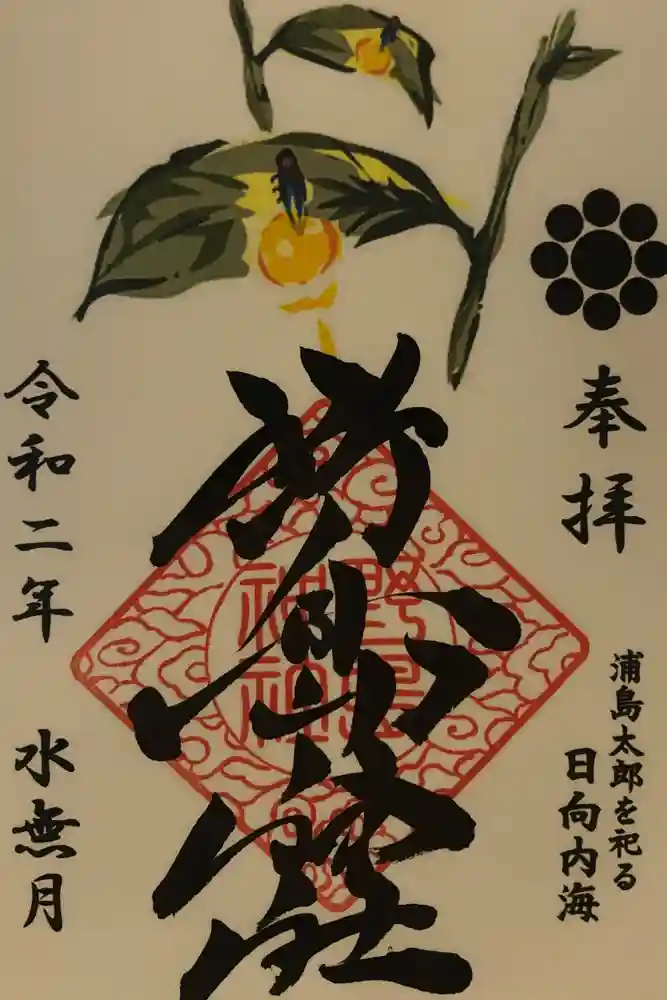 奉拝
浦島太郎を祀る
日向内海
野島
神社
令和二年 水無月